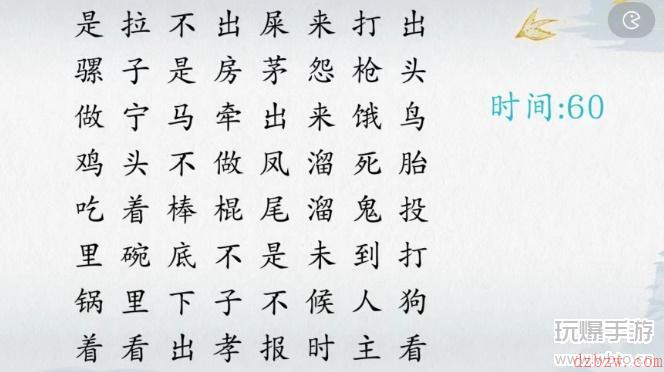 是拉不出屎来打出
骡子是房茅怨枪头
做宁马牵出来饿鸟
鸡头不做凤溜死胎
吃着棒棍尾溜鬼投
里碗底不是未到打
锅里下子不候人狗
着看出孝报时主看
时间:60
玩爆手游
www.wbto.cn
dzbzw.com